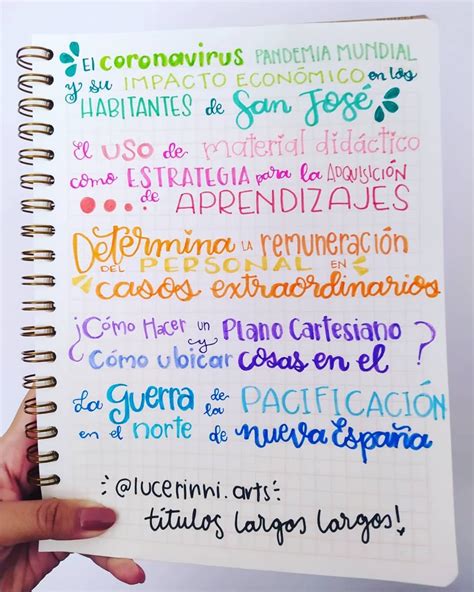 El coronavirus PANDEMIA MUNDIAL
y su IMPACTO ECONÓMICO en los
HABITANTES de San José
El USO de material didáctico
como ESTRATEGIA para la ADQUISICIÓN
de APRENDIZAJES
Determina LA remuneración
DEL PERSONAL EN
casos extraordinarios
¿Cómo Hacer un Plano Cartesiano
y Cómo ubicar cosas en el?
La Guerra de la PACIFICACIÓN
en el norte de nueva España
@lucerinni.arts
títulos largos largos!